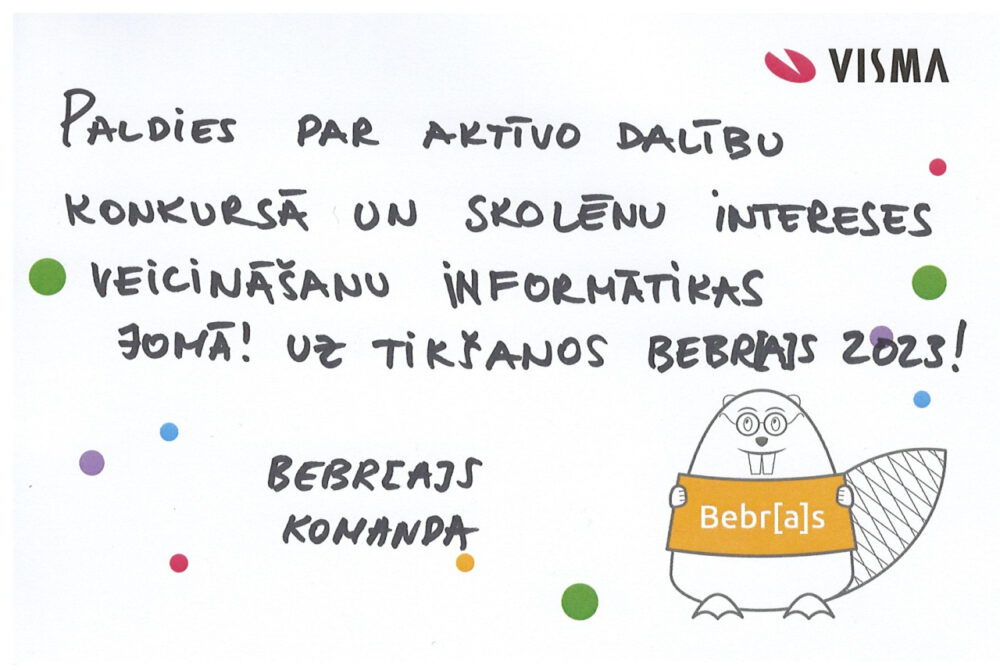 VISMA
PALDIES PAR AKTĪVO DALĪBU
KONKURSĀ UN SKOLĒNU INTERESES
VEICINĀŠANU INFORMĀTIKAS
JOMĀ! UZ TIKŠANOS BEBR[A]S 2023!
BEBR[A]S
KOMANDA
Bebr[a]s